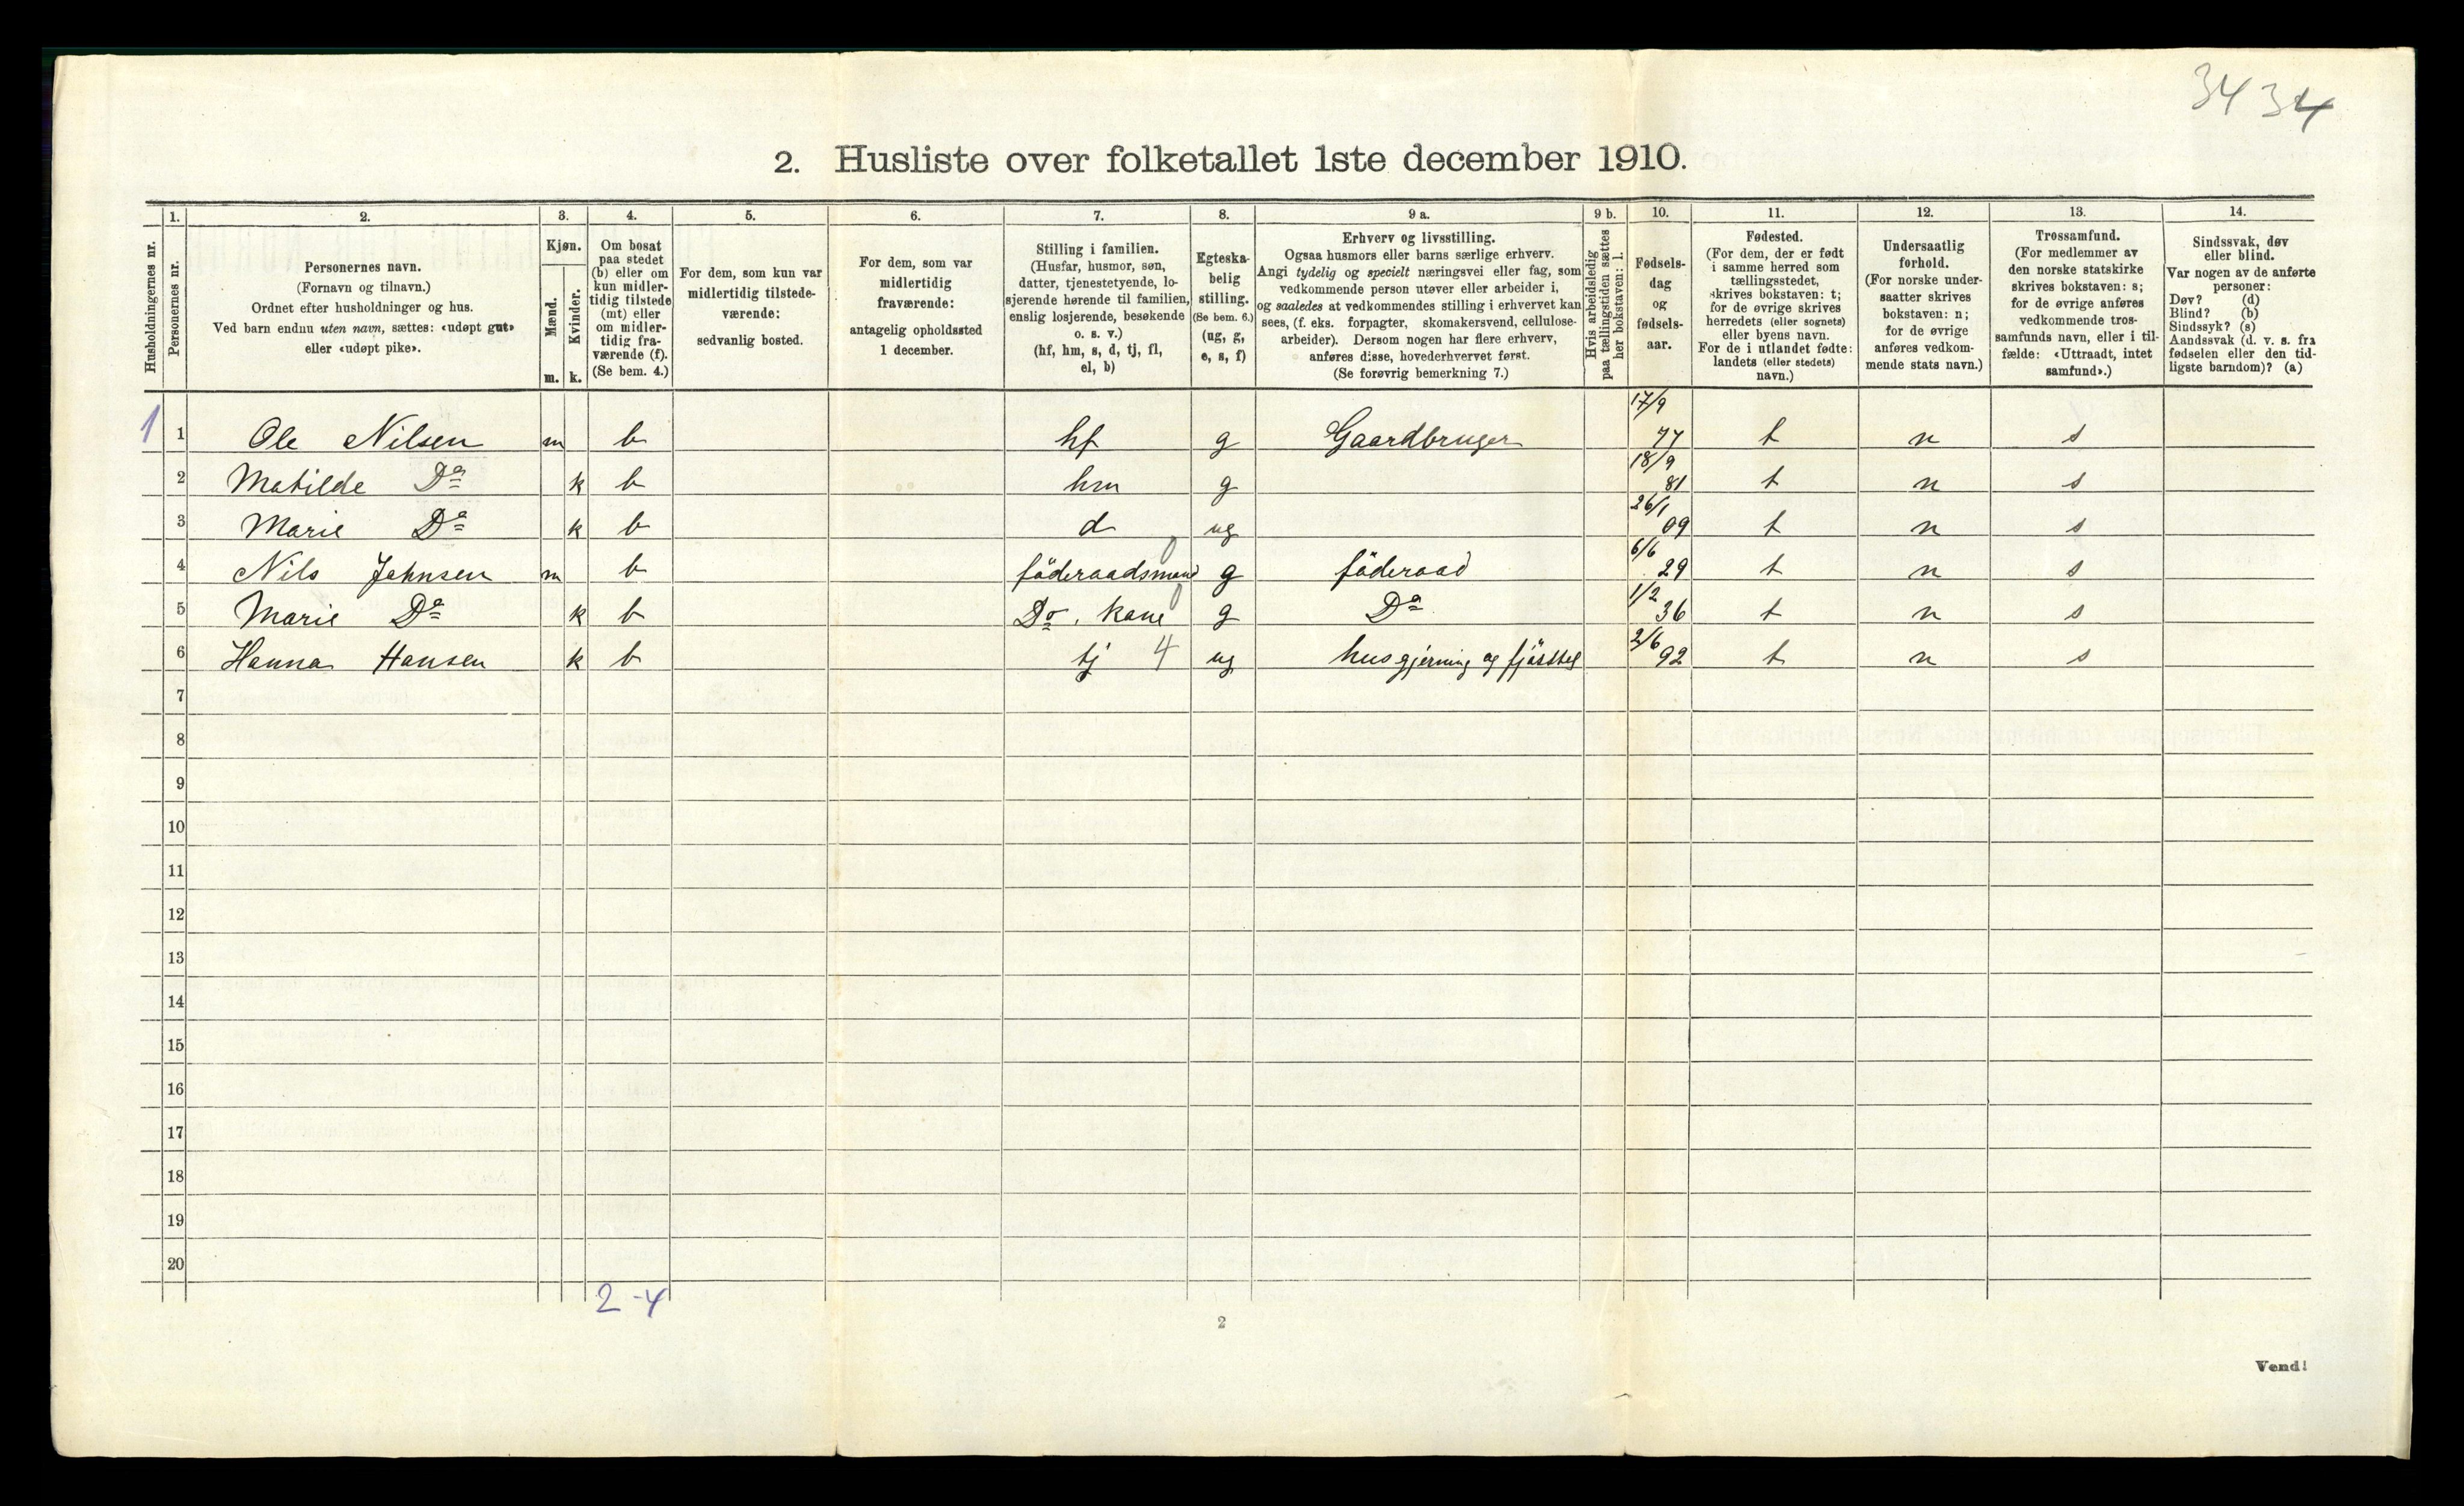 34 34
2. Husliste over folketallet 1ste december 1910.
Husholdningernes nr.
1.
Personernes nr.
2.
Personernes navn.
(Fornavn og tilnavn.)
Ordnet efter husholdninger og hus.
Ved barn endnu uten navn, sættes: «udøpt gut»
eller «udøpt pike».
3.
Kjøn.
Mænd.
m.
Kvinder.
k.
4.
Om bosat
paa stedet
(b) eller om
kun midler-
tidig tilstede
(mt) eller
om midler-
tidig fra-
værende (f).
(Se bem. 4.)
5.
For dem, som kun var
midlertidig tilstede-
værende:
sedvanlig bosted.
6.
For dem, som var
midlertidig
fraværende:
antagelig opholdssted
1 december.
7.
Stilling i familien.
(Husfar, husmor, søn,
datter, tjenestetyende, lo-
sjerende hørende til familien,
enslig losjerende, besøkende
o. s. v.)
(hf, hm, s, d, tj, fl,
el, b)
8.
Egteska-
belig
stilling.
(Se bem. 6.)
(ug, g,
e, s, f)
9 a.
Erhverv og livsstilling.
Ogsaa husmors eller barns særlige erhverv.
Angi tydelig og specielt næringsvei eller fag, som
vedkommende person utøver eller arbeider i,
og saaledes at vedkommendes stilling i erhvervet kan
sees, (f. eks. forpagter, skomakersvend, cellulose-
arbeider). Dersom nogen har flere erhverv,
anføres disse, hovederhvervet først.
(Se forøvrig bemerkning 7.)
9 b.
Hvis arbeidsledig
paa tællingstiden sættes
her bokstaven: l.
10.
Fødsels-
dag
og
fødsels-
aar.
11.
Fødested.
(For dem, der er født
i samme herred som
tællingsstedet,
skrives bokstaven: t;
for de øvrige skrives
herredets (eller sognets)
eller byens navn.
For de i utlandet fødte:
landets (eller stedets)
navn.)
12.
Undersaatlig
forhold.
(For norske under-
saatter skrives
bokstaven: n;
for de øvrige
anføres vedkom-
mende stats navn.)
13.
Trossamfund.
(For medlemmer av
den norske statskirke
skrives bokstaven: s;
for de øvrige anføres
vedkommende tros-
samfunds navn, eller i til-
fælde: «Uttraadt, intet
samfund».)
14.
Sindssvak, døv
eller blind.
Var nogen av de anførte
personer:
Døv? (d)
Blind? (b)
Sindssyk? (s)
Aandssvak (d. v. s. fra
fødselen eller den tid-
ligste barndom)? (a)
1 1 Ole Nilsen m b hf g Gaardbruger 17/9 77 t n s
2 Matilde Do k b hm g 18/9 81 t n s
3 Marie Do k b d ug 26/1 09 t n s
4 Nils Johnsen m b föderaadsmand 0 g föderaad 6/6 29 t n s
5 Marie Do k b Do. kone 0 g Do 1/2 36 t n s
6 Hanna Hansen k b tj 4 ug husgjerning og fjösstel 2/6 92 t n s
7
8
9
10
11
12
13
14
15
16
17
18
19
20
2 - 4
2
Vend!